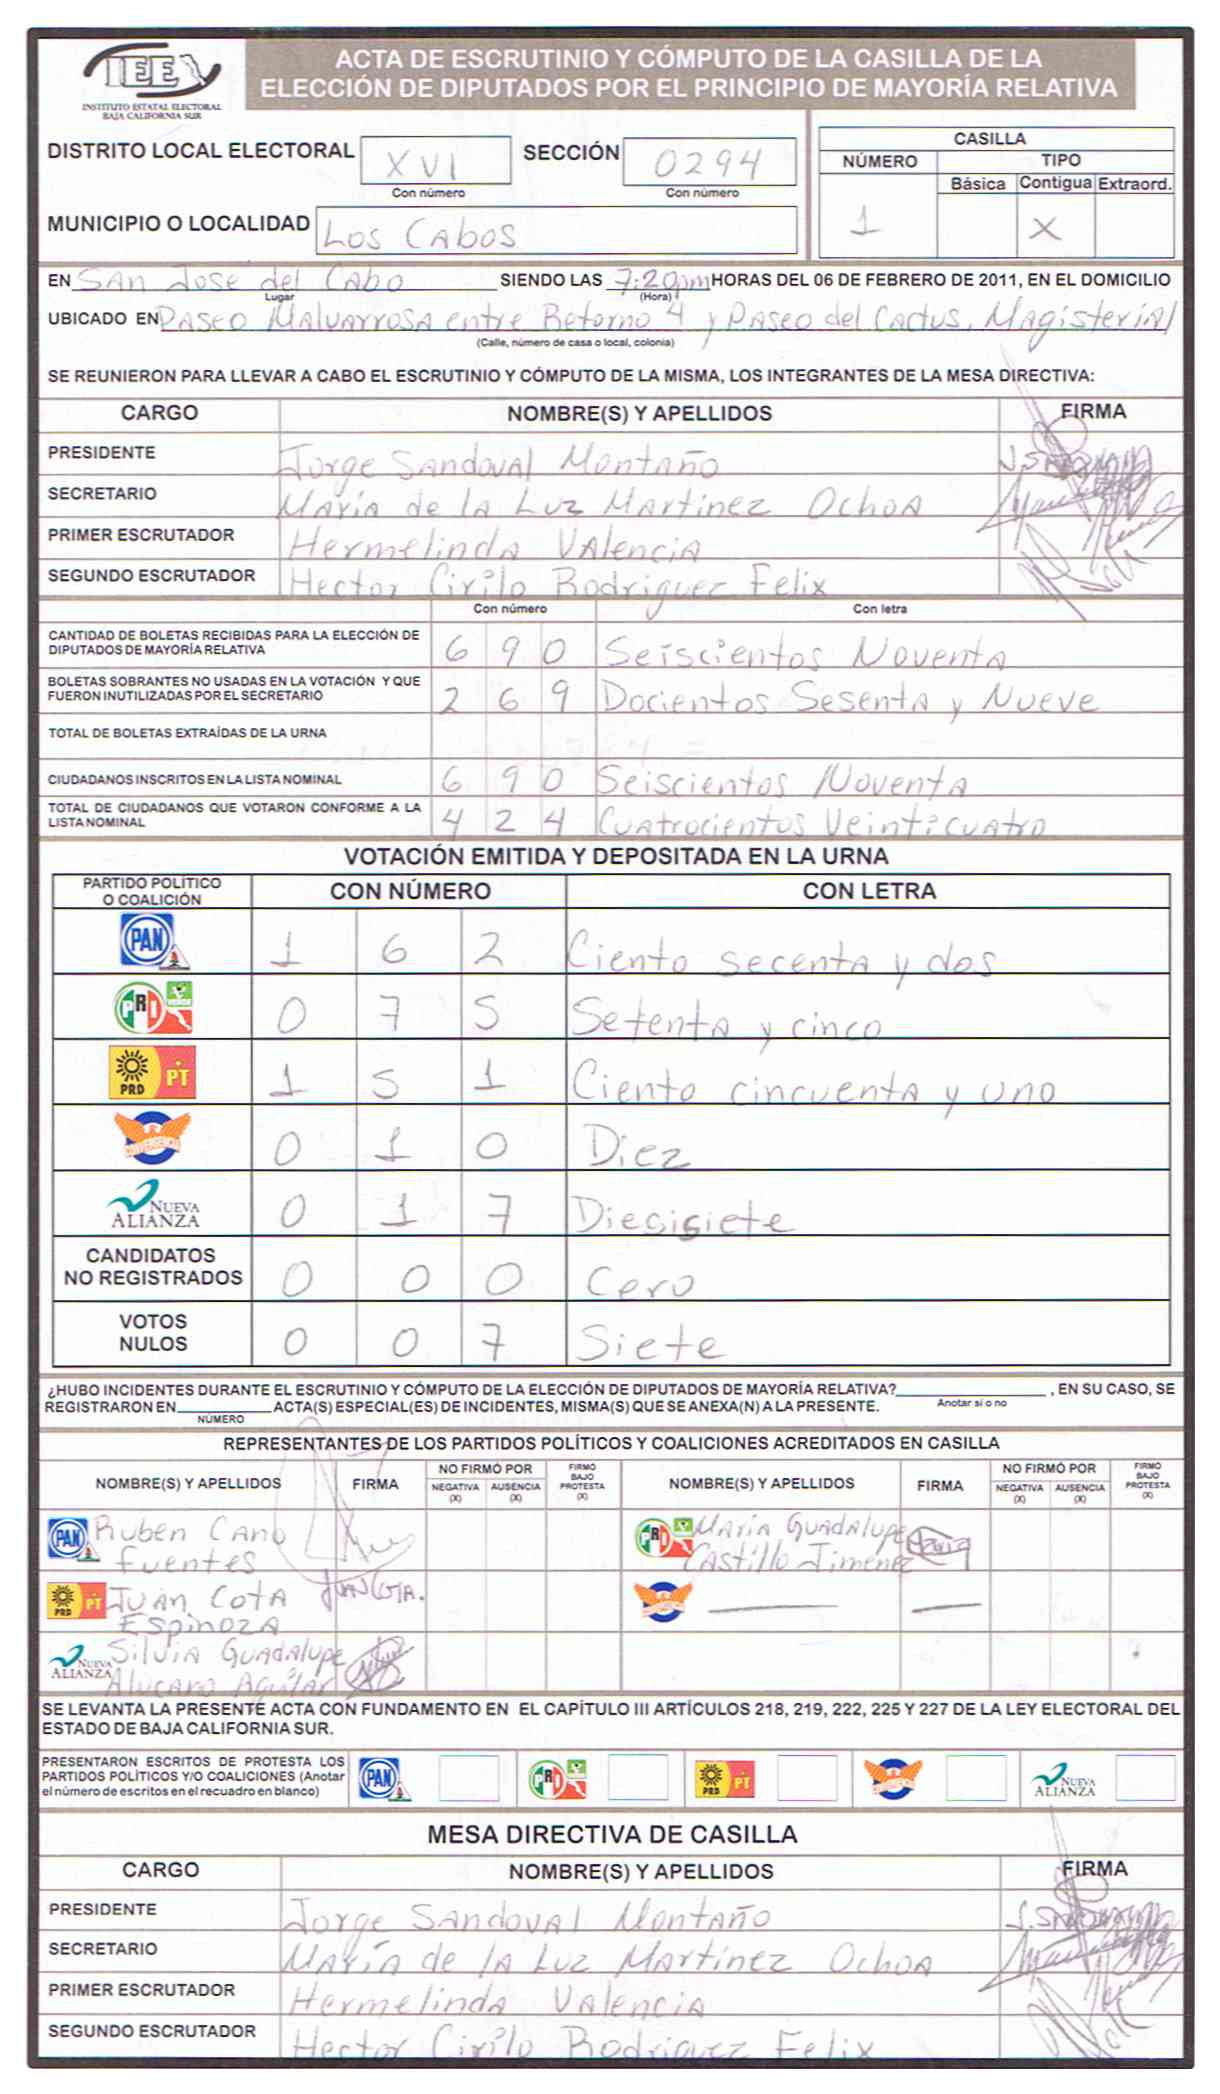 IEE
INSTITUTO ESTATAL ELECTORAL
BAJA CALIFORNIA SUR
ACTA DE ESCRUTINIO Y CÓMPUTO DE LA CASILLA DE LA
ELECCIÓN DE DIPUTADOS POR EL PRINCIPIO DE MAYORÍA RELATIVA
DISTRITO LOCAL ELECTORAL XVI SECCIÓN 0294
Con número Con número
MUNICIPIO O LOCALIDAD Los Cabos
CASILLA
NÚMERO TIPO
Básica Contigua Extraord.
1 X
EN San Jose del Cabo SIENDO LAS 7:20pm HORAS DEL 06 DE FEBRERO DE 2011, EN EL DOMICILIO
Lugar (Hora)
UBICADO EN Paseo Malvarrosa entre Retorno 4 y Paseo del Cactus, Magisterial
(Calle, número de casa o local, colonia)
SE REUNIERON PARA LLEVAR A CABO EL ESCRUTINIO Y CÓMPUTO DE LA MISMA, LOS INTEGRANTES DE LA MESA DIRECTIVA:
CARGO NOMBRE(S) Y APELLIDOS FIRMA
PRESIDENTE Jorge Sandoval Montaño
SECRETARIO María de la Luz Martinez Ochoa
PRIMER ESCRUTADOR Hermelinda Valencia
SEGUNDO ESCRUTADOR Hector Cirilo Rodriguez Felix
Con número Con letra
CANTIDAD DE BOLETAS RECIBIDAS PARA LA ELECCIÓN DE
DIPUTADOS DE MAYORÍA RELATIVA 6 9 0 Seiscientos Noventa
BOLETAS SOBRANTES NO USADAS EN LA VOTACIÓN Y QUE
FUERON INUTILIZADAS POR EL SECRETARIO 2 6 9 Docientos Sesenta y Nueve
TOTAL DE BOLETAS EXTRAÍDAS DE LA URNA
CIUDADANOS INSCRITOS EN LA LISTA NOMINAL 6 9 0 Seiscientos Noventa
TOTAL DE CIUDADANOS QUE VOTARON CONFORME A LA
LISTA NOMINAL 4 2 4 Cuatrocientos Veinticuatro
VOTACIÓN EMITIDA Y DEPOSITADA EN LA URNA
PARTIDO POLÍTICO
O COALICIÓN CON NÚMERO CON LETRA
PAN 1 6 2 Ciento secenta y dos
PRI VERDE 0 7 5 Setenta y cinco
PRD PT 1 5 1 Ciento cincuenta y uno
CONVERGENCIA 0 1 0 Diez
NUEVA ALIANZA 0 1 7 Diecisiete
CANDIDATOS
NO REGISTRADOS 0 0 0 Cero
VOTOS
NULOS 0 0 7 Siete
¿HUBO INCIDENTES DURANTE EL ESCRUTINIO Y CÓMPUTO DE LA ELECCIÓN DE DIPUTADOS DE MAYORÍA RELATIVA? , EN SU CASO, SE
Anotar sí o no
REGISTRARON EN ACTA(S) ESPECIAL(ES) DE INCIDENTES, MISMA(S) QUE SE ANEXA(N) A LA PRESENTE.
NÚMERO
REPRESENTANTES DE LOS PARTIDOS POLÍTICOS Y COALICIONES ACREDITADOS EN CASILLA
NOMBRE(S) Y APELLIDOS FIRMA NO FIRMÓ POR NEGATIVA (X) AUSENCIA (X) FIRMÓ BAJO PROTESTA (X) NOMBRE(S) Y APELLIDOS FIRMA NO FIRMÓ POR NEGATIVA (X) AUSENCIA (X) FIRMÓ BAJO PROTESTA (X)
PAN Ruben Cano
Fuentes
PRI María Guadalupe
Castillo Jimenez
PRD PT Juan Cota
Espinoza Juan Cota.
NUEVA ALIANZA Silvia Guadalupe
Aguilar
SE LEVANTA LA PRESENTE ACTA CON FUNDAMENTO EN EL CAPÍTULO III ARTÍCULOS 218, 219, 222, 225 Y 227 DE LA LEY ELECTORAL DEL
ESTADO DE BAJA CALIFORNIA SUR.
PRESENTARON ESCRITOS DE PROTESTA LOS
PARTIDOS POLÍTICOS Y/O COALICIONES (Anotar
el número de escritos en el recuadro en blanco)
PAN PRI PRD PT NUEVA ALIANZA
MESA DIRECTIVA DE CASILLA
CARGO NOMBRE(S) Y APELLIDOS FIRMA
PRESIDENTE Jorge Sandoval Montaño
SECRETARIO María de la Luz Martinez Ochoa
PRIMER ESCRUTADOR Hermelinda Valencia
SEGUNDO ESCRUTADOR Hector Cirilo Rodriguez Felix